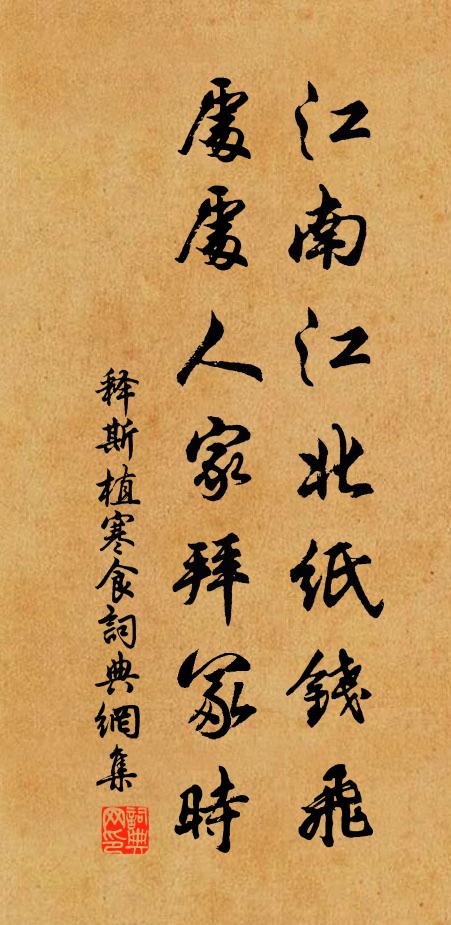 江南江北紙錢飛
處處人家拜冢時
释斯植寒食詞典網集
詞典网印